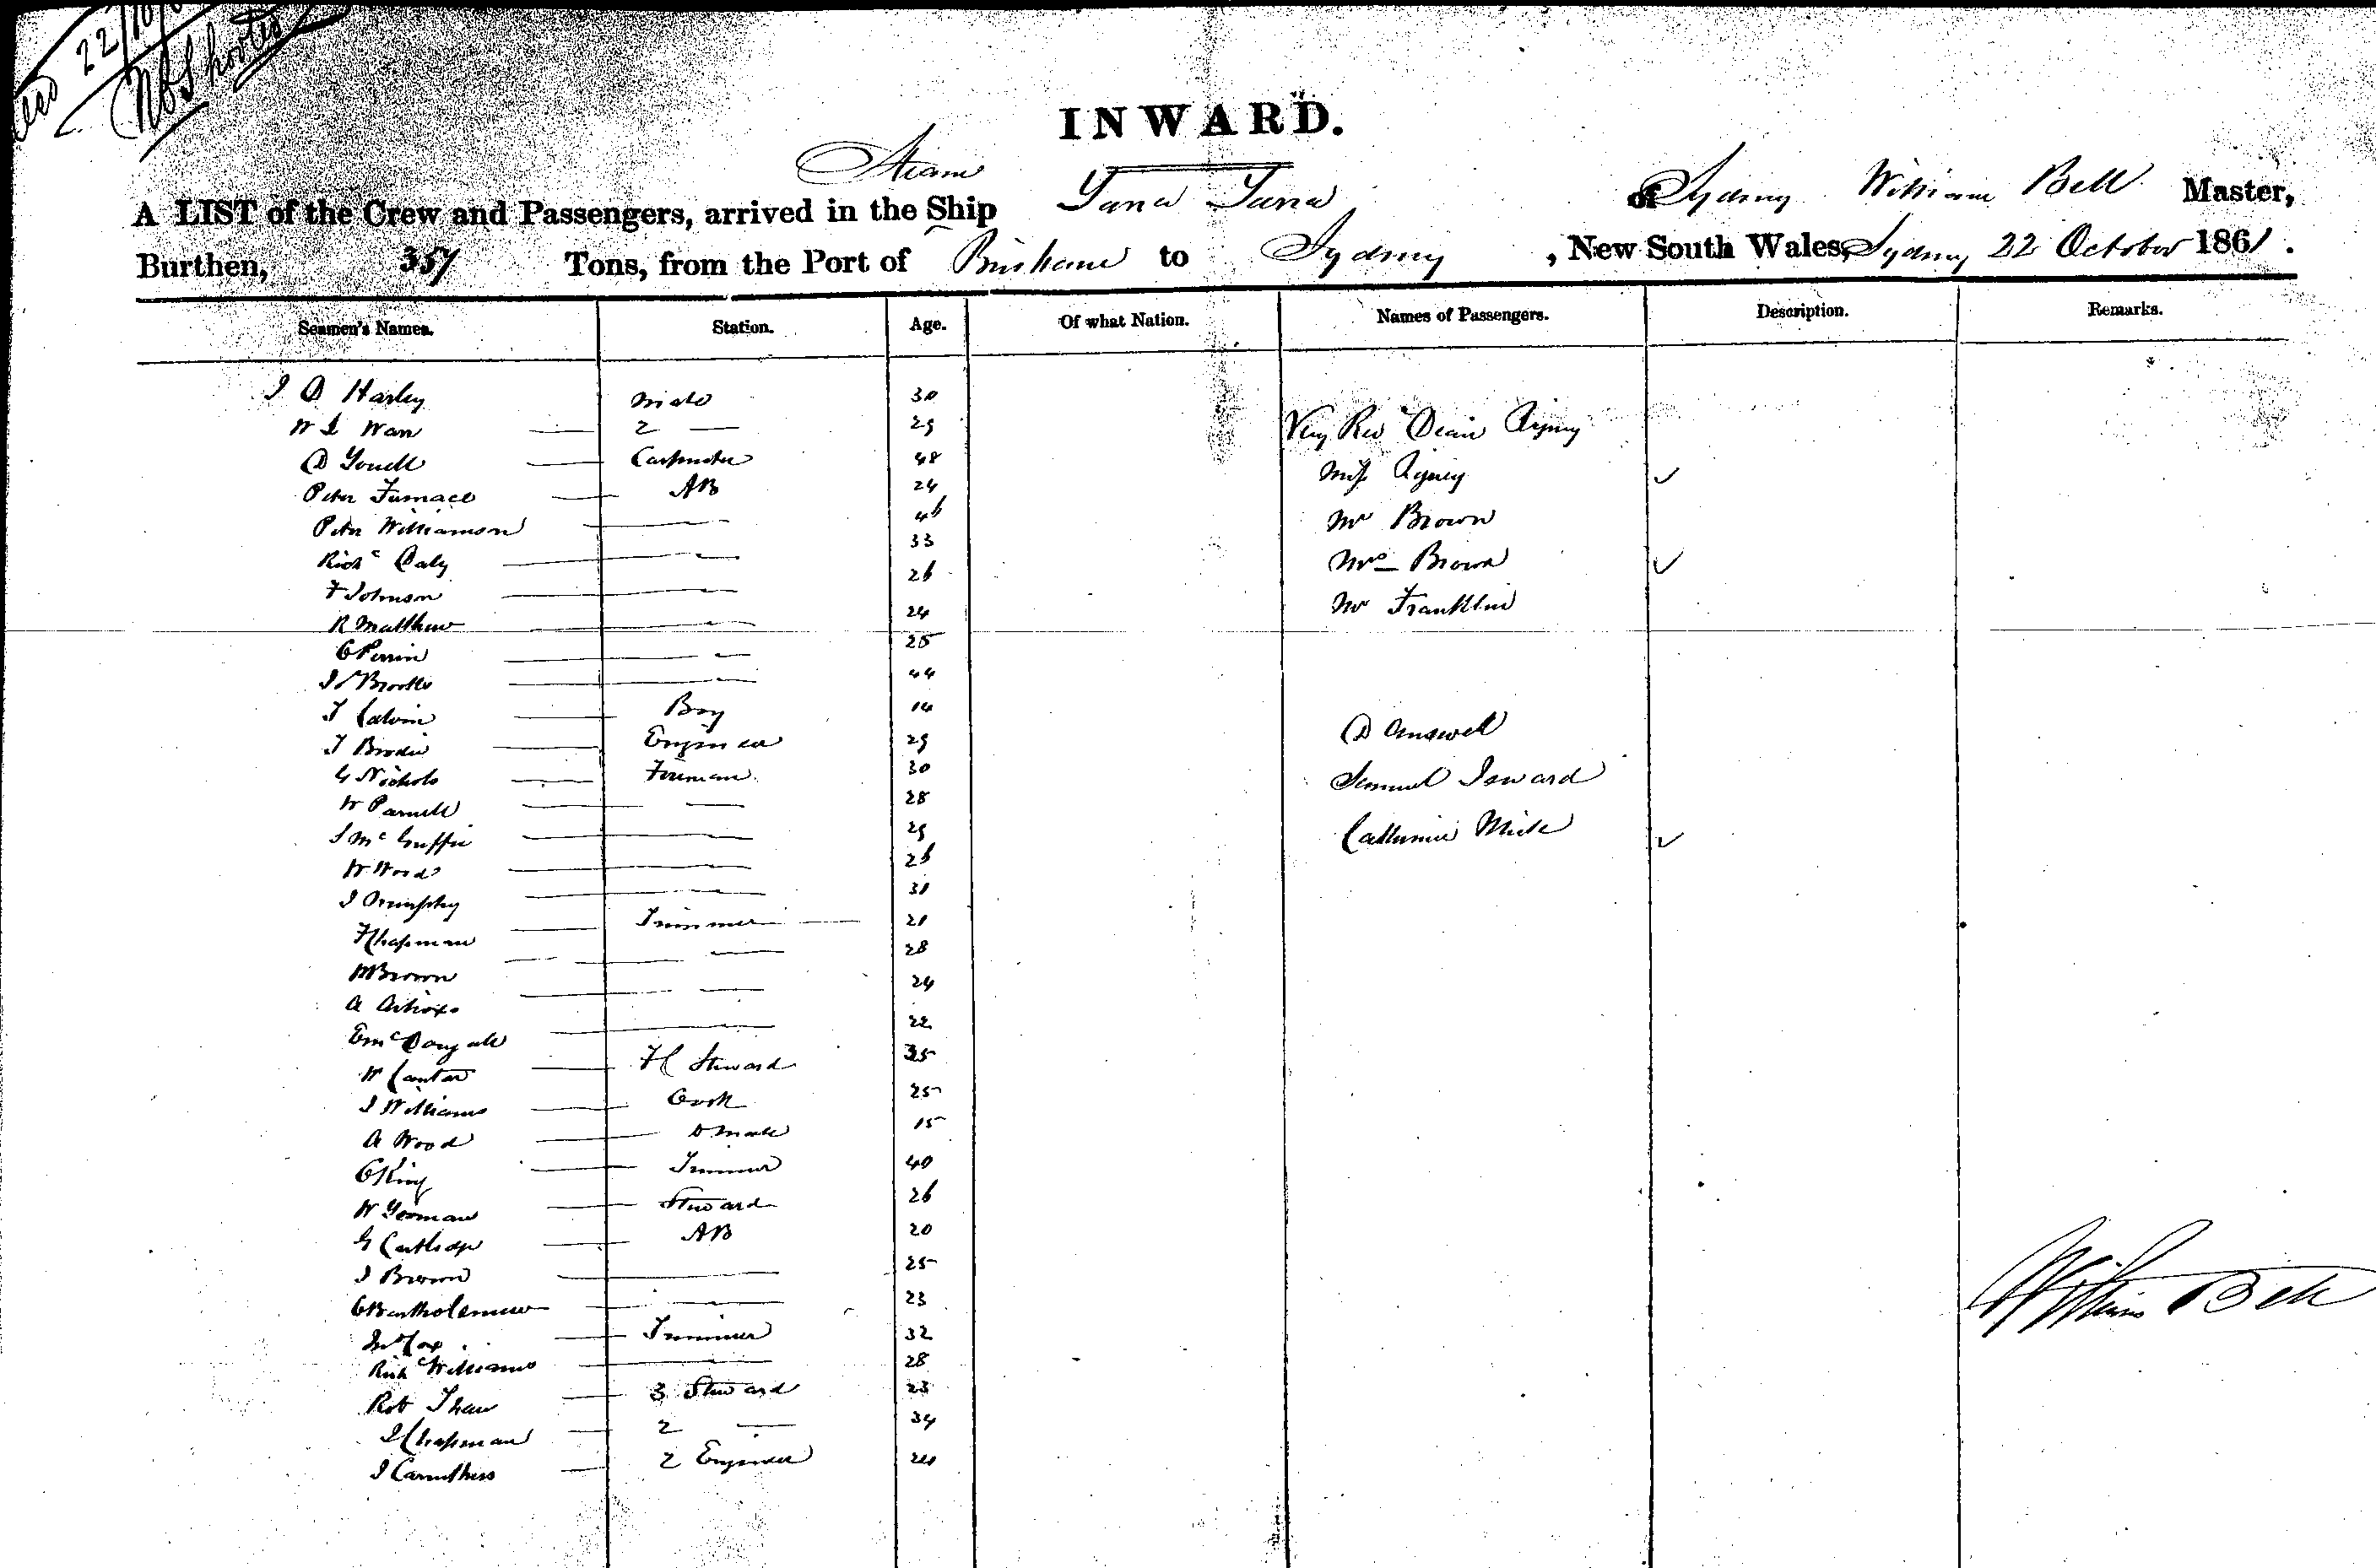 22/10/
INWARD.
Steam
A LIST of the Crew and Passengers, arrived in the Ship Yarra Yarra of Sydney William Bell Master,
Burthen, 357 Tons, from the Port of Brisbane to Sydney, New South Wales, Sydney 22 October 1861.
Seamen's Names. Station. Age. Of what Nation. Names of Passengers. Description. Remarks.
J D Harley Mate 30
W J Warr 2 — 29 Very Rev Dean Rigney
D Youell Carpenter 48 Miss Rigney ✓
Peter Furnace AB 24
Peter Williamson — 46 Mr Brown
Rich Daly — 33 Mrs Brown ✓
F Johnson — 26 Mr Franklin
R Matthew — 24
C Perrin — 25
J Brooks — 44
T Calvin Boy 14 D
T Brodie Engineer 29
G Nichols Fireman 30 Samuel
W Parnell — 28
J McGuffie — 29 Catherine ✓
W Wood — 26
J Murphy — 31
F Chapman Trimmer 21
M Brown — 28
A — 24
E McDougall — 22
W Canter F C Steward 35
J Williams Cook 25
A Wood D Mate 15
C King Trimmer 40
W Yeoman Steward 26
G Cartledge AB 20
J Brown — 25
C Bartholemew — 23
Jno Cox Trimmer 32
Rich Williams — 28
Rob Shaw 3 Steward 23
J Chapman 2 — 34
J Carruthers 2 Engineer 24
William Bell